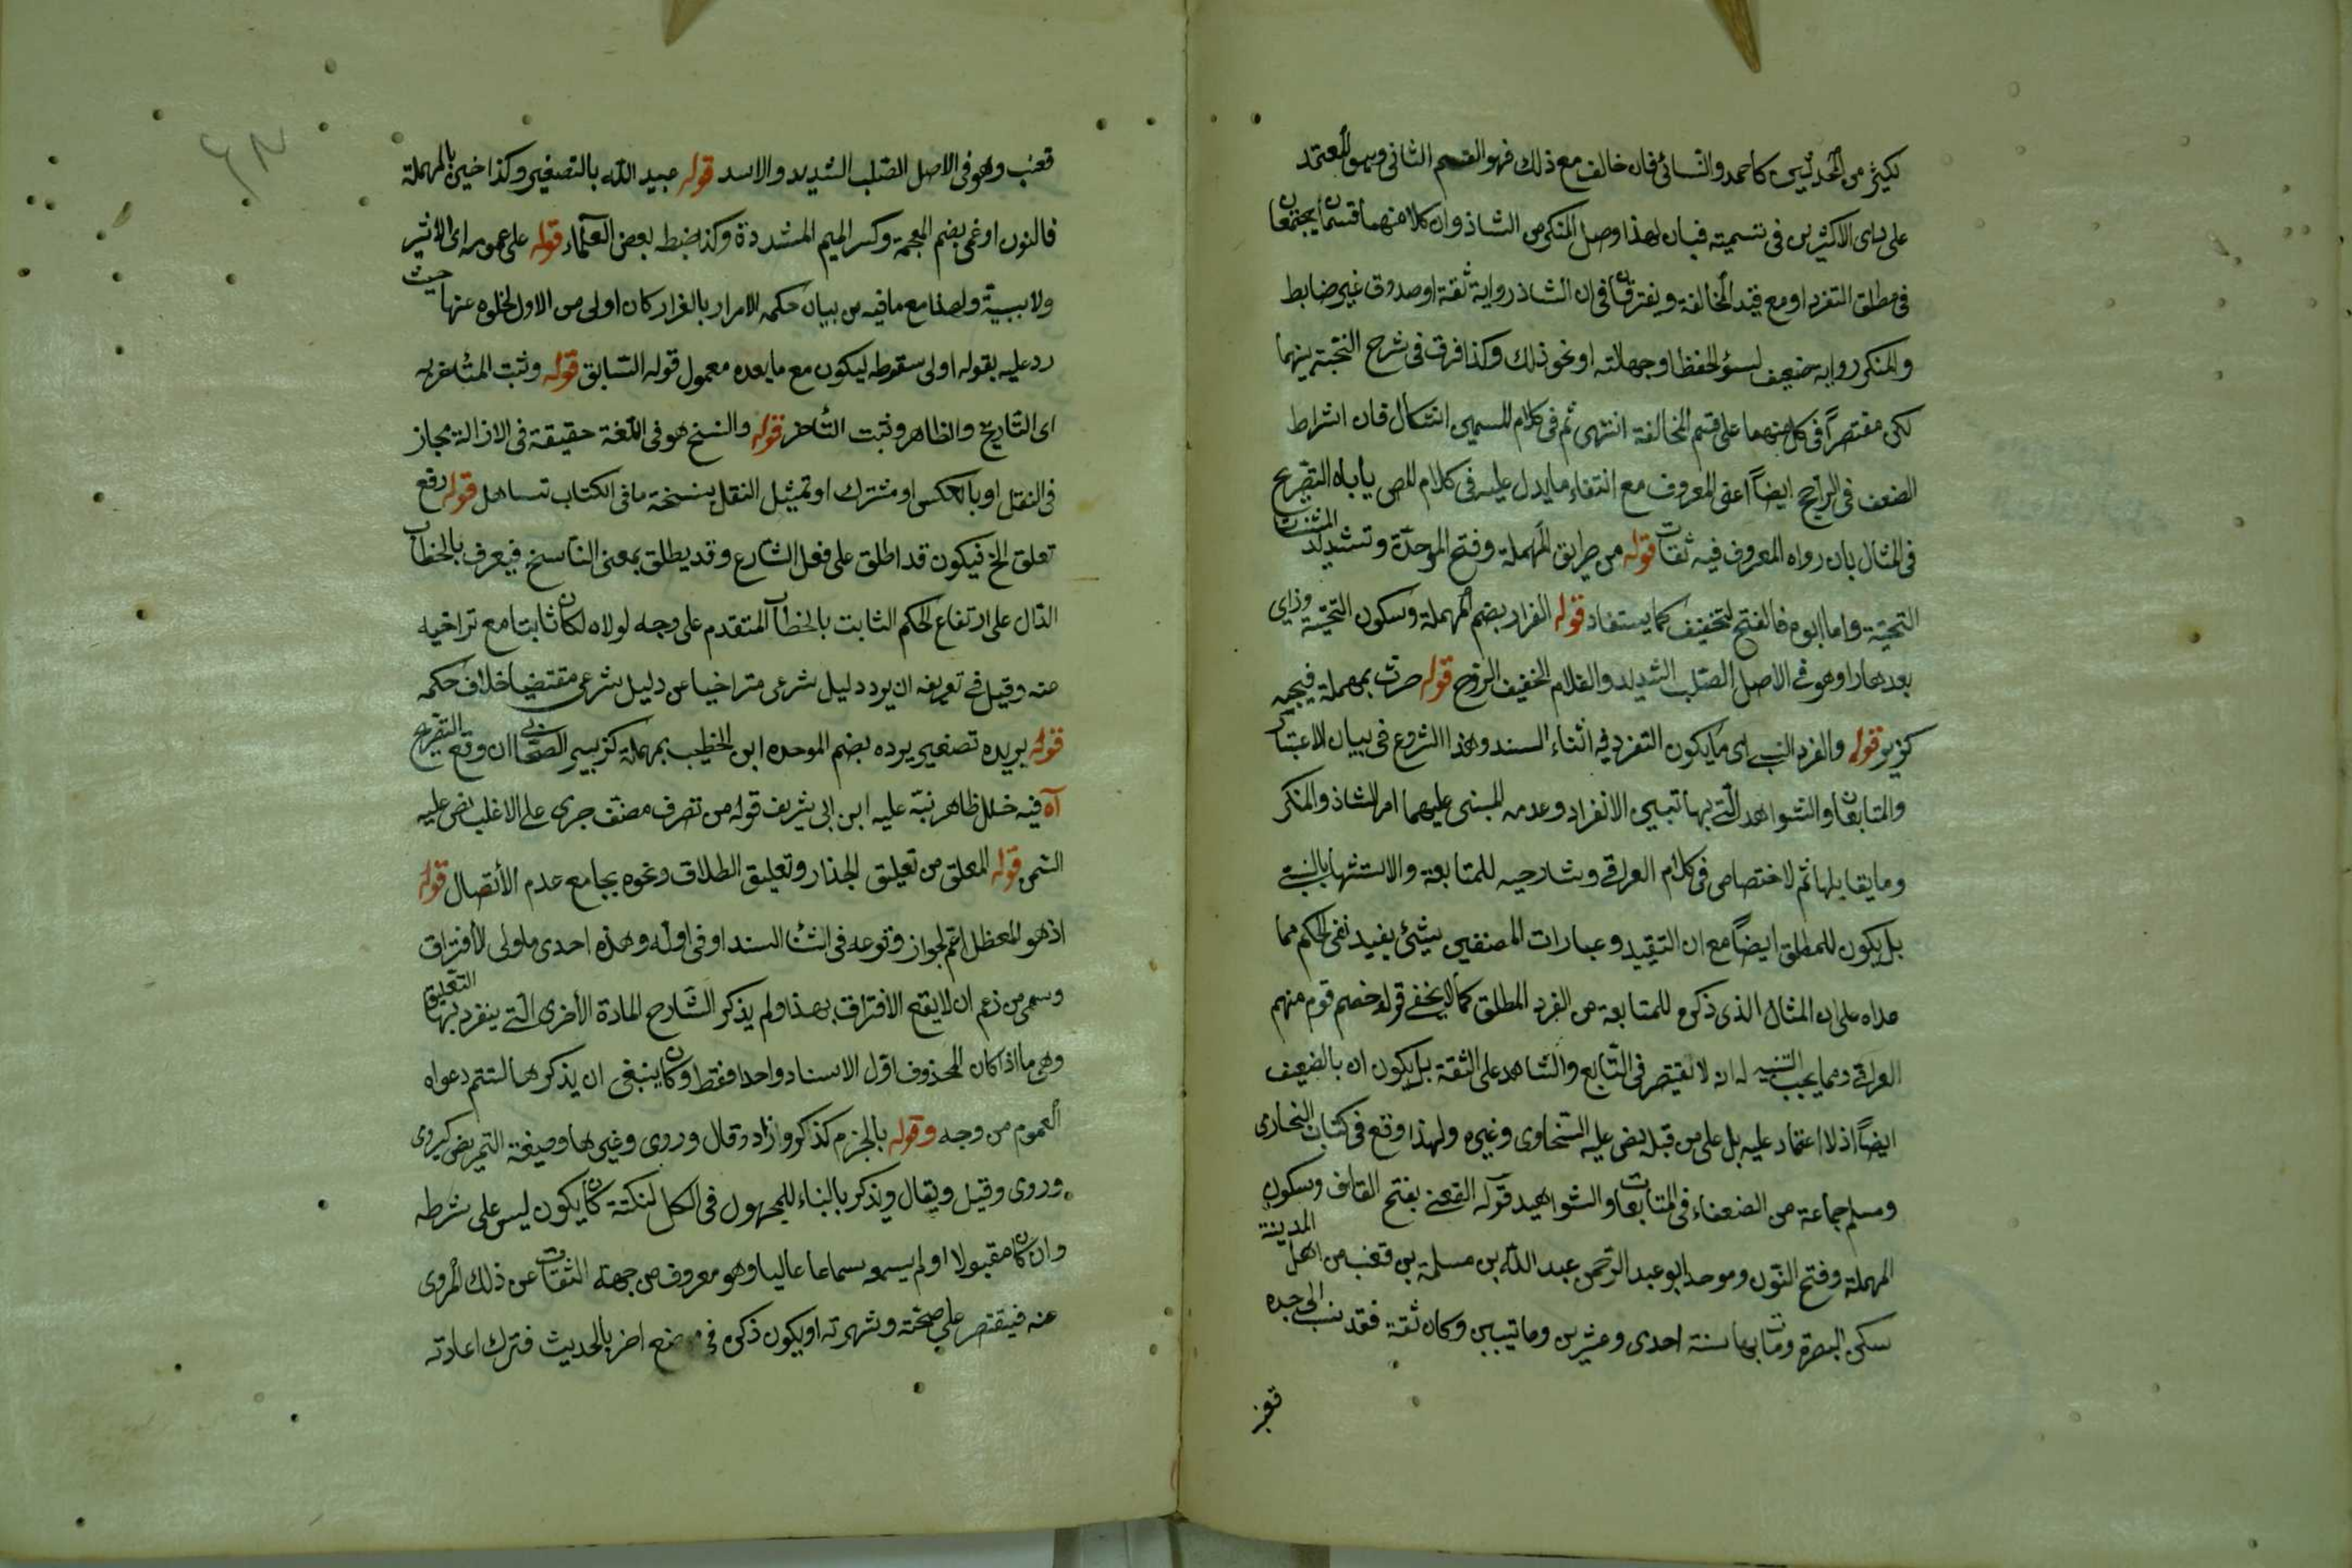 لكثير من المحدثين كاحمد والنسائى فان خالف مع ذلك فهو القسم الثانى وهو المعتمد
على راى الاكثرين فى تسميته فبان لهذا وصل المنكر من الشاذ وان كلا منهما قسمان يجتمعان
فى مطلق التفرد او مع قيد المخالفة ويفترقان فى ان الشاذ رواية ثقة او صدوق غير ضابط
والمنكر رواية ضعيف لسوء الحفظ او جهالته او نحو ذلك وكذا فرق فى شرح النخبة بينهما
لكن مقتصرًا فى كل منهما على قسم المخالفة انتهى ثم فى كلام المسمين اشكال فان اشراط
الضعف فى الراجح ايضًا اعنى المعروف مع انتفاء ما يدل عليه فى كلام المص يأباه التصريح
فى المثال بان رواه المعروف فيه ثقات قوله من طريق المهملة وفتح الموحدة وتشديد المثناة
التحتية واما ابوه فالفتح لتخفيف كما يستفاد قوله الفرار بضم المهملة وسكون التحتية وزاى
بعدها را وهو فى الاصل الصلب الشديد والغلام الخفيف الروح قوله حرث بمهملة فيجيم
كزبير قوله والفرد النسبى اى ما يكون التفرد فى اثناء السند وهذا الشروع فى بيان الاعتبار
والمتابعات والشواهد التى بها تبيين الانفراد وعدمه المبنى عليهما امر الشاذ والمنكر
وما يقابلها ثم لا اختصاص فى كلام العراقى وشارحيه للمتابعة والاستشهاد بالنسبى
بل يكون للمطلق ايضًا مع ان التقييد وعبارات المصنفين بشئ يفيد نفى الحكم مما
عداه على ان المثال الذى ذكره للمتابعة من الفرد المطلق كما لا يخفى قوله خصهم قوم منهم
العراقى ومما يجب التنبيه له انه لا تقتصر فى التابع والشاهد على الثقة بل يكون ان بالضعيف
ايضًا اذ لا اعتماد عليه بل على من قبله نص عليه السخاوى وغيره ولهذا وقع فى كتاب البخارى
ومسلم جماعة من الضعفاء فى المتابعات والشواهد قوله القعنبى بفتح القاف وسكون
المهملة وفتح النون وموحد ابو عبد الرحمن عبد الله بن مسلمة بن قعنب من اهل المدينة
سكن البصرة ومات بها سنة احدى وعشرين وماتيين وكان ثقة فقد نسب الى جده
قعنب
قعنب وهو فى الاصل الصلب الشديد والاسد قوله عبيد الله بالتصغير وكذا خنين بالمهملة
فالنون او غمى بضم المعجمة وكسر الميم المشددة وكذا ضبط بعض العلماء قوله على عمومه اى الاثير
ولا سببية ولهذا مع ما فيه من بيان حكمه للامرار بالفرار كان اولى من الاول لخلوه عنها حيث
رد عليه بقوله اولى سقوطه ليكون مع ما بعده معمول قوله السابق قوله وثبت المتأخر به
اى التاريخ والظاهر وثبت التأخر قوله والنسخ هو فى اللغة حقيقة فى الازالة مجاز
فى النقل او بالعكس او مشترك او تمثيل النقل بنسخة ما فى الكتاب تساهل قوله رفع
تعلق الخ فيكون قد اطلق على فعل الشارع وقد يطلق بمعنى الناسخ فيعرف بالخطاب
الدال على ارتفاع الحكم الثابت بالخطاب المتقدم على وجه لولاه لكان ثابتا مع تراخيه
عنه وقيل فى تعريفه ان يرد دليل شرعى متراخيا عن دليل شرعى مقتضيا خلاف حكمه
قوله بريده تصغير برده بضم الموحده ابن الخطيب بمهملة كزبير الصحابى ان وقع التصريح
آه فيه خلل ظاهر نبه عليه ابن ابى شريف قوله من تصرف مصنف جرى على الاغلب نص عليه
الشمى قوله المعلق من تعليق الجدار وتعليق الطلاق ونحوه بجامع عدم الأتصال قوله
اذ هو المعظل اعم لجواز وقوعه فى اثنا السند او فى اوله وهذه احدى ماولى للافتراق
وسمى من زعم ان لا يقع الافتراق بهذا ولم يذكر الشارح المادة الأخرى التى ينفرد بها التعليق
وهى ما اذا كان المحذوف اول الاسناد واحدا فقط وكان ينبغى ان يذكرها لتتم دعواه
العموم من وجه وقوله بالجزم كذكر وزاد وقال وروى وغيرها وصيغة التمريض كيروى
وروى وقيل ويقال ويذكر بالبناء للمجهول فى الكل لنكتة كان يكون ليس على شرطه
وان كان مقبولا او لم يسمعه سماعا عاليا وهو معروف من جهة الثقات عن ذلك المروى
عنه فيقتصر على صحته وشهرته او يكون ذكره فى موضع اخر بالحديث فترك اعادته